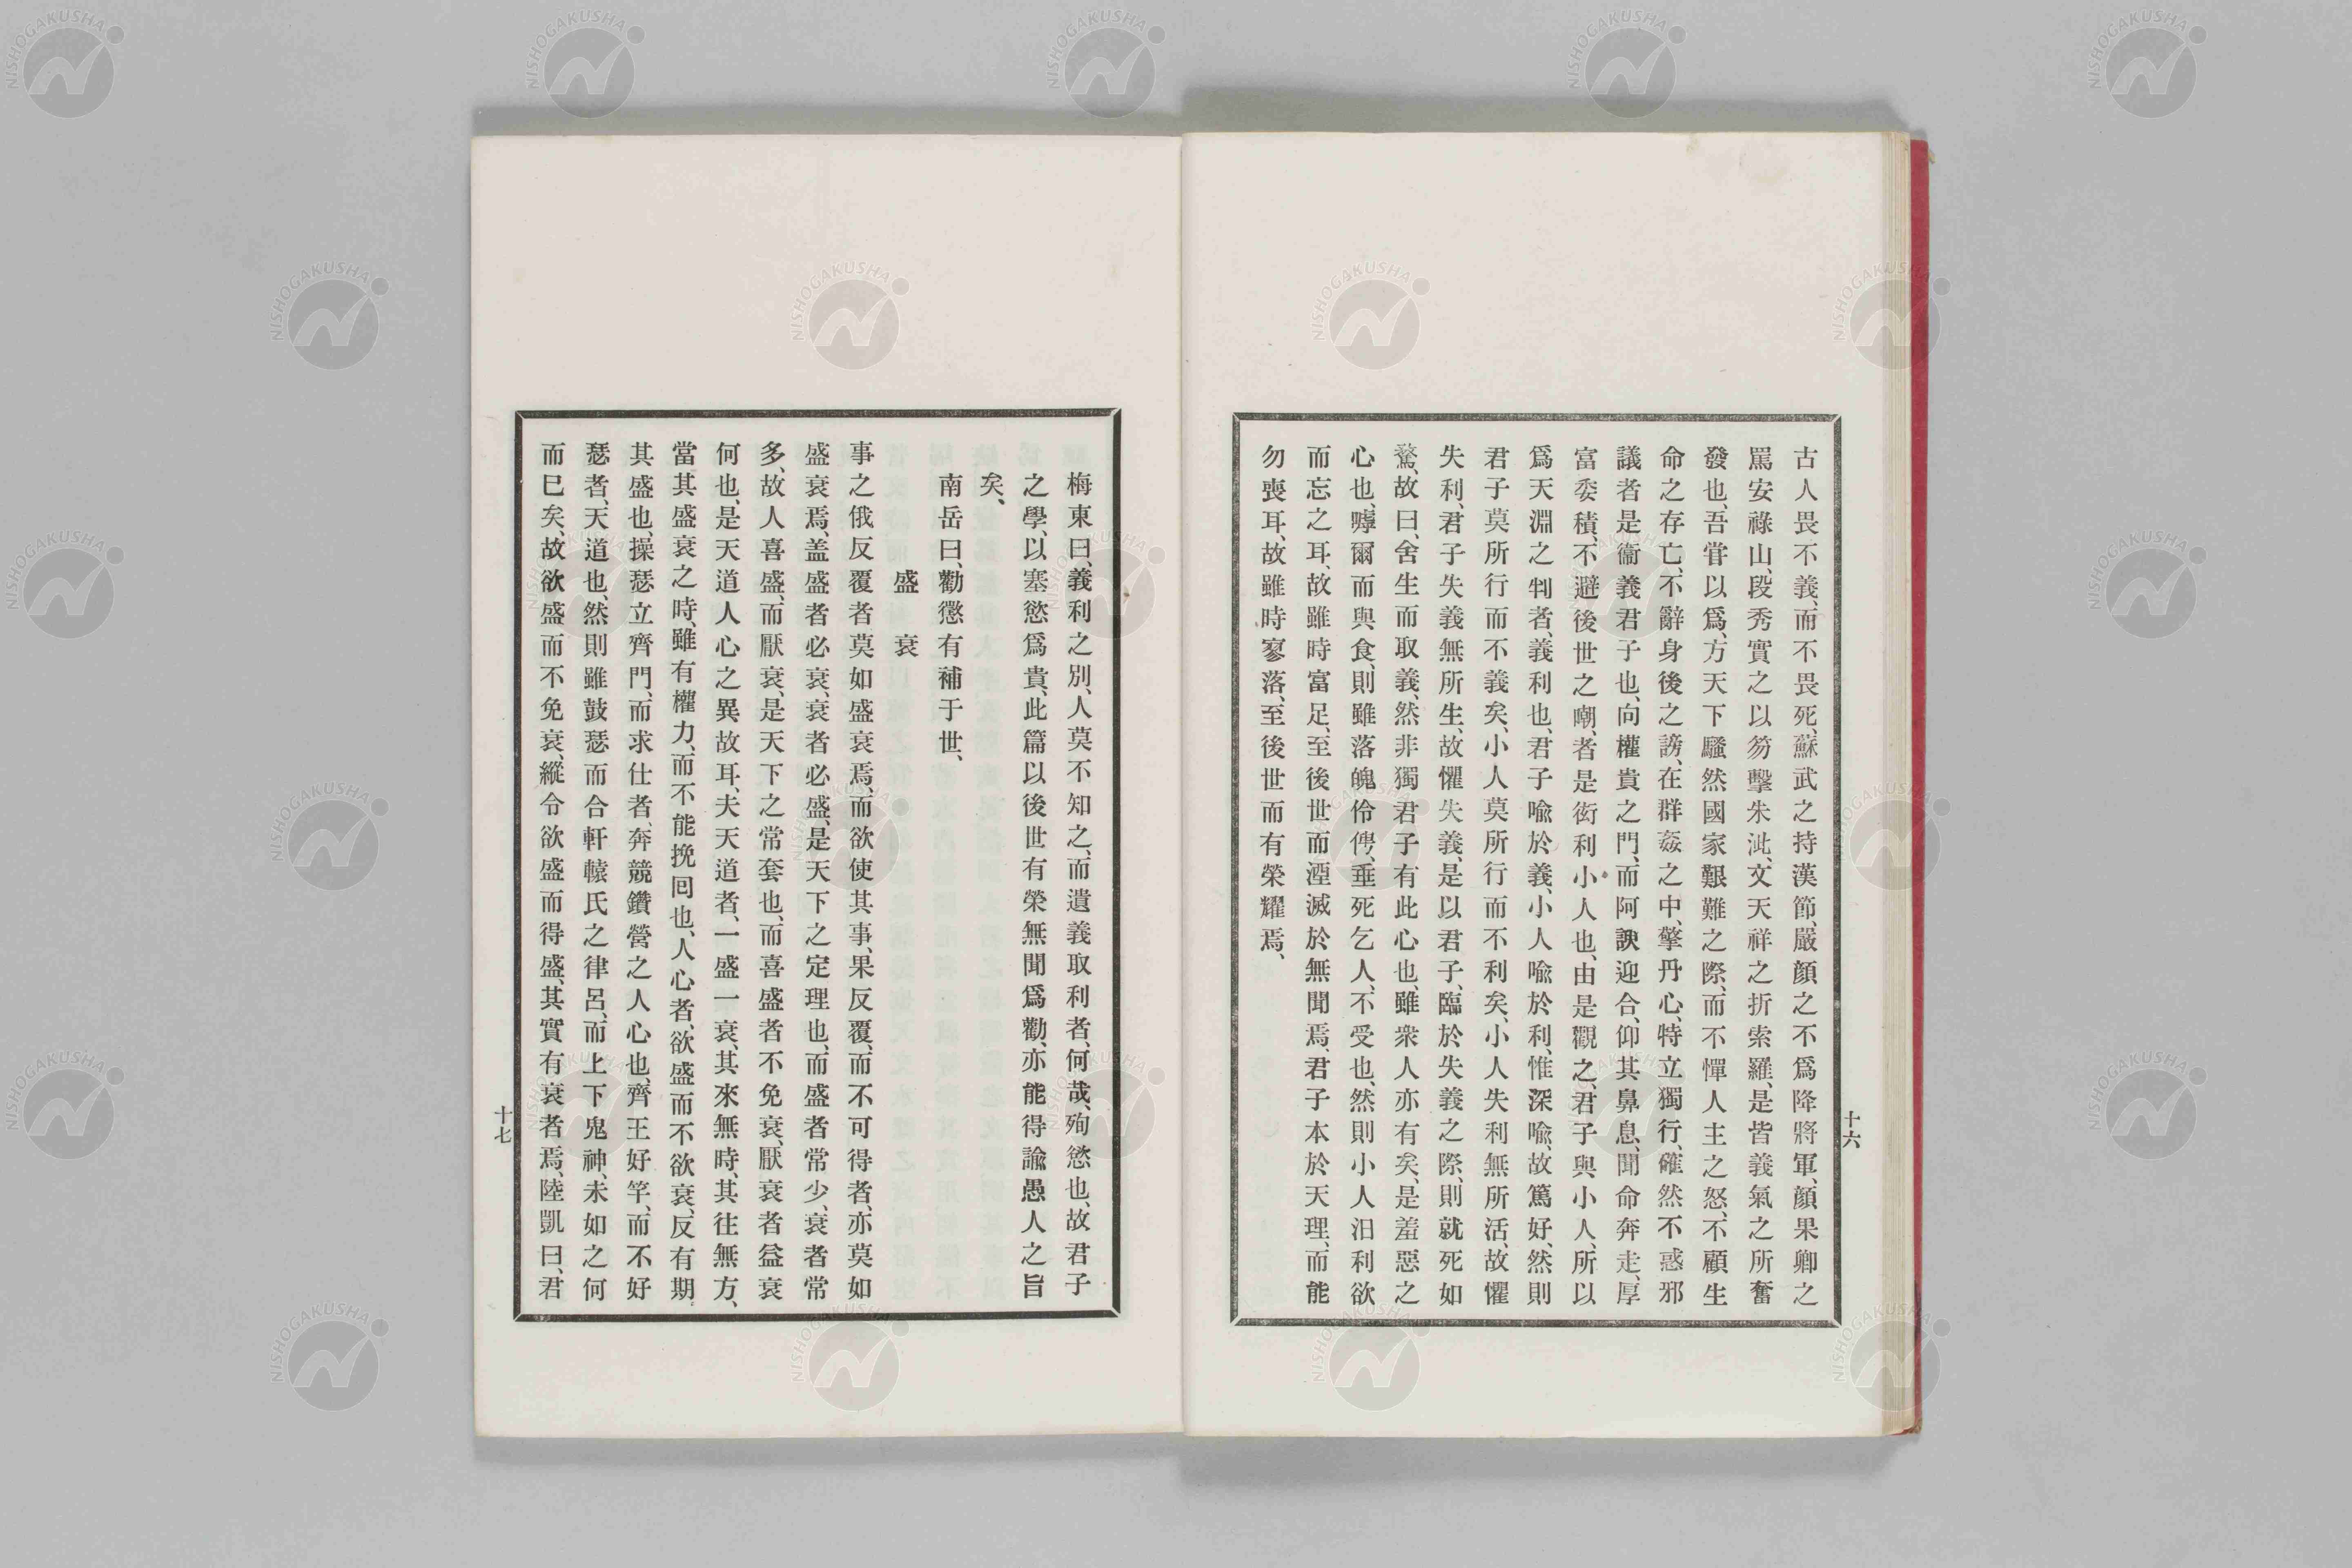 古人畏不義、而不畏死、蘇武之持漢節、嚴顔之不爲降將軍、顔果卿之
罵安祿山、段秀實之以笏擊朱泚、文天祥之折索羅、是皆義氣之所奮
發也、吾甞以爲、方天下騷然國家艱難之際、而不憚人主之怒、不顧生
命之存亡、不辭身後之謗、在群姦之中、擎丹心、特立獨行、確然不惑邪
議者、是衞義君子也、向權貴之門、而阿諛迎合、仰其鼻息、聞命奔走、厚
富委積、不避後世之嘲、者是衒利小人也、由是觀之、君子與小人、所以
爲天淵之判者、義利也、君子喩於義、小人喩於利、惟深喩、故篤好、然則
君子莫所行而不義矣、小人莫所行而不利矣、小人失利無所活、故懼
失利、君子失義無所生、故懼失義、是以君子、臨於失義之際、則就死如
騖、故曰、舍生而取義、然非獨君子有此心也、雖衆人亦有矣、是羞惡之
心也、嘑爾而與食、則雖落魄伶俜、垂死乞人、不受也、然則小人汨利欲
而忘之耳、故雖時富足、至後世而湮滅於無聞焉、君子本於天理、而能
勿喪耳、故雖時寥落、至後世而有榮耀焉、
十六
梅東曰、義利之別、人莫不知之、而遺義取利者、何哉、殉慾也、故君子
之學、以塞慾爲貴、此篇以後世有榮無聞爲勸、亦能得諭愚人之旨
矣、
南岳曰、勸懲有補于世、
盛衰
事之俄反覆者莫如盛衰焉、而欲使其事、果反覆、而不可得者、亦莫如
盛衰焉、盖盛者必衰、衰者必盛、是天下之定理也、而盛者常少、衰者常
多、故人喜盛、而厭衰、是天下之常套也、而喜盛者不免衰、厭衰者益衰
何也、是天道人心之異故耳、夫天道者、一盛一衰、其來無時、其往無方、
當其盛衰之時、雖有權力、而不能挽囘也、人心者、欲盛而不欲衰、反有期
其盛也、操瑟立齊門、而求仕者、奔競鑽營之人心也、齊王好竽、而不好
瑟者、天道也、然則雖鼓瑟而合軒轅氏之律呂、而上下鬼神、未如之何
而巳矣、故欲盛而不免衰、縱令欲盛而得盛、其實有衰者焉、陸凱曰、君
十七
NISHOGAKUSHA